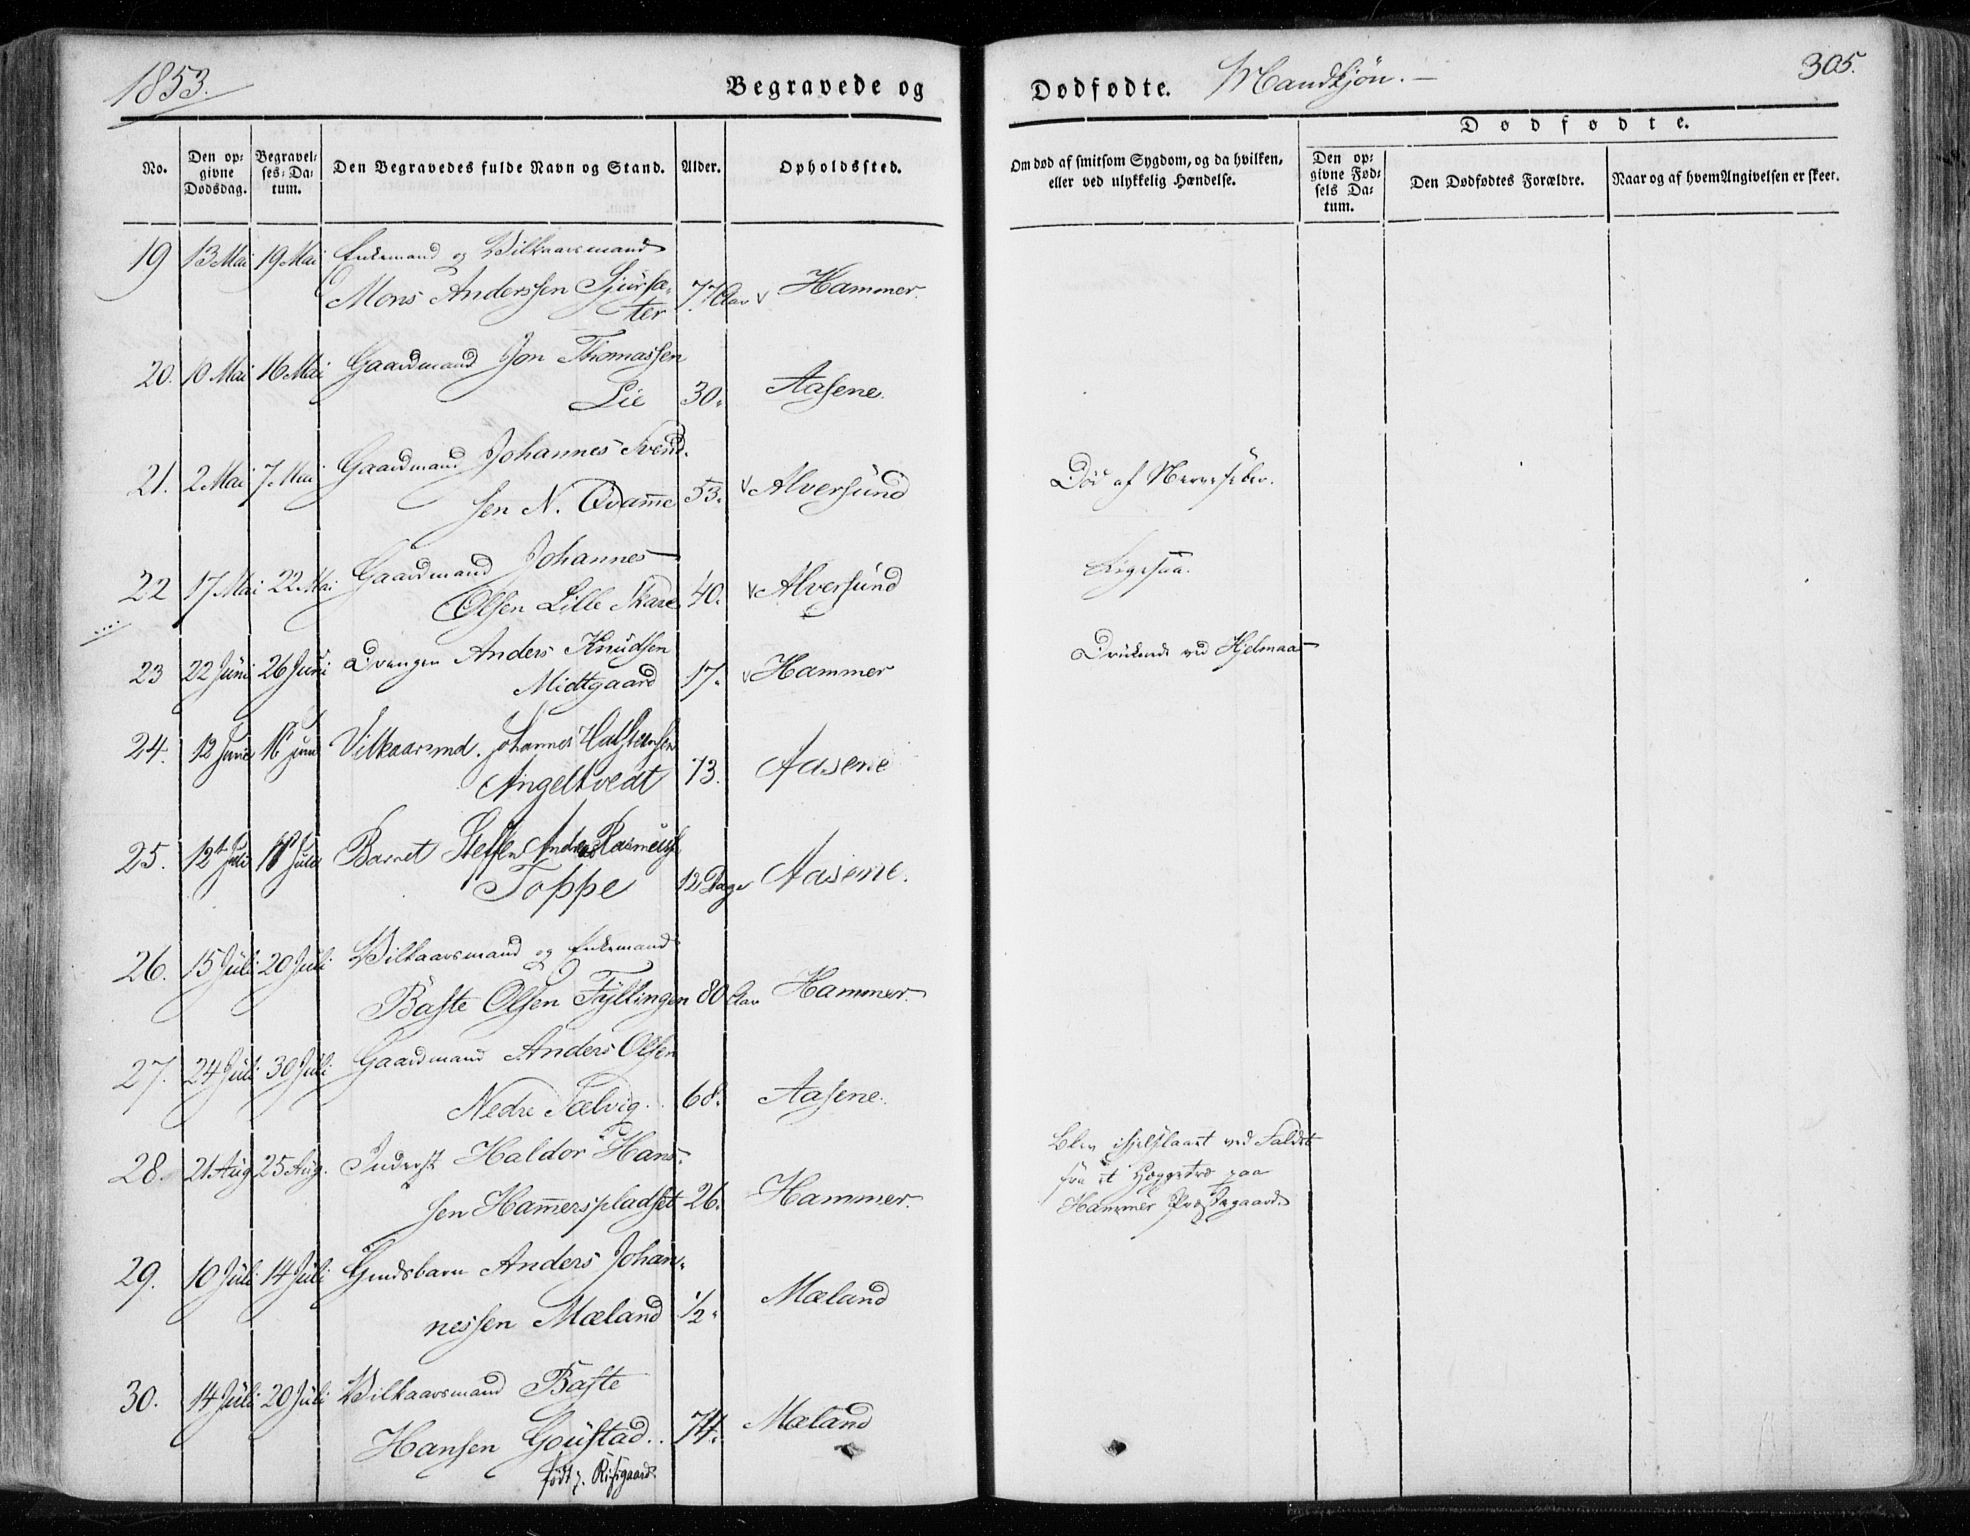 1853.
Begravede og Dødfødte. Mandkjøn.
305.
No.
Den opgivne Dødsdag.
Begravelses-Datum.
Den Begravedes fulde Navn og Stand.
Alder.
Opholdssted.
Om død af smitsom Sygdom, og da hvilken, eller ved ulykkelig Hændelse.
Dødfødte.
Den opgivne Fødsels Datum.
Den Dødfødtes Forældre.
Naar og af hvem Angivelsen er skeet.
19 13 Mai 19 Mai Enkemand og Vilkaarsmand
Mons Anderssen Sjursæ-
ter 77 Aar v Hammer.
20. 10 Mai 16 Mai Gaardmand Jon Thomassen
Lie 30. Aasene.
21. 2 Mai 7 Mai Gaardmand Johannes Svend-
sen N. Qvamme 53. v Alversund Død af Nervefeber.
22 17 Mai 22 Mai Gaardmand Johannes
Olsen Lille Skare 40. v Alversund Ligesaa.
23 22 Juni 26 Juni Drengen Anders Knudsen
Midtgaard 17. v Hammer Druknede ved Hjelmaas
24. 12 Juni 16 Juni Vilkaarsmd. Johannes Halstensen
Angeltvedt 73. Aasene
25. 12te Juli 18 Juli Barnet Steffen Anders Rasmuss.
Toppe 12 Dage Aasene.
26. 15 Juli 20 Juli Vilkaarsmand og Enkemand
Baste Olsen Fyllingen 80 Aar Hammer.
27. 24 Juli 30 Juli Gaardmand Anders Olsen
Nedre Tælvig. 68. Aasene.
28. 21 Aug 25 Aug. Inderst Haldor Hans-
sen Hammerspladset 26. Hammer.
Blev ihjelslaaet ved Faldet
fra et Heggetræ paa
Hammer Præstegaard.
29. 10 Juli 14 Juli Gaardsbarn Anders Johan-
nessen Mæland 1/2. Mæland
30. 14 Juli 20 Juli Vilkaarsmand Baste
Hansen Goustad. 74. Mæland
født p. Risgaard.